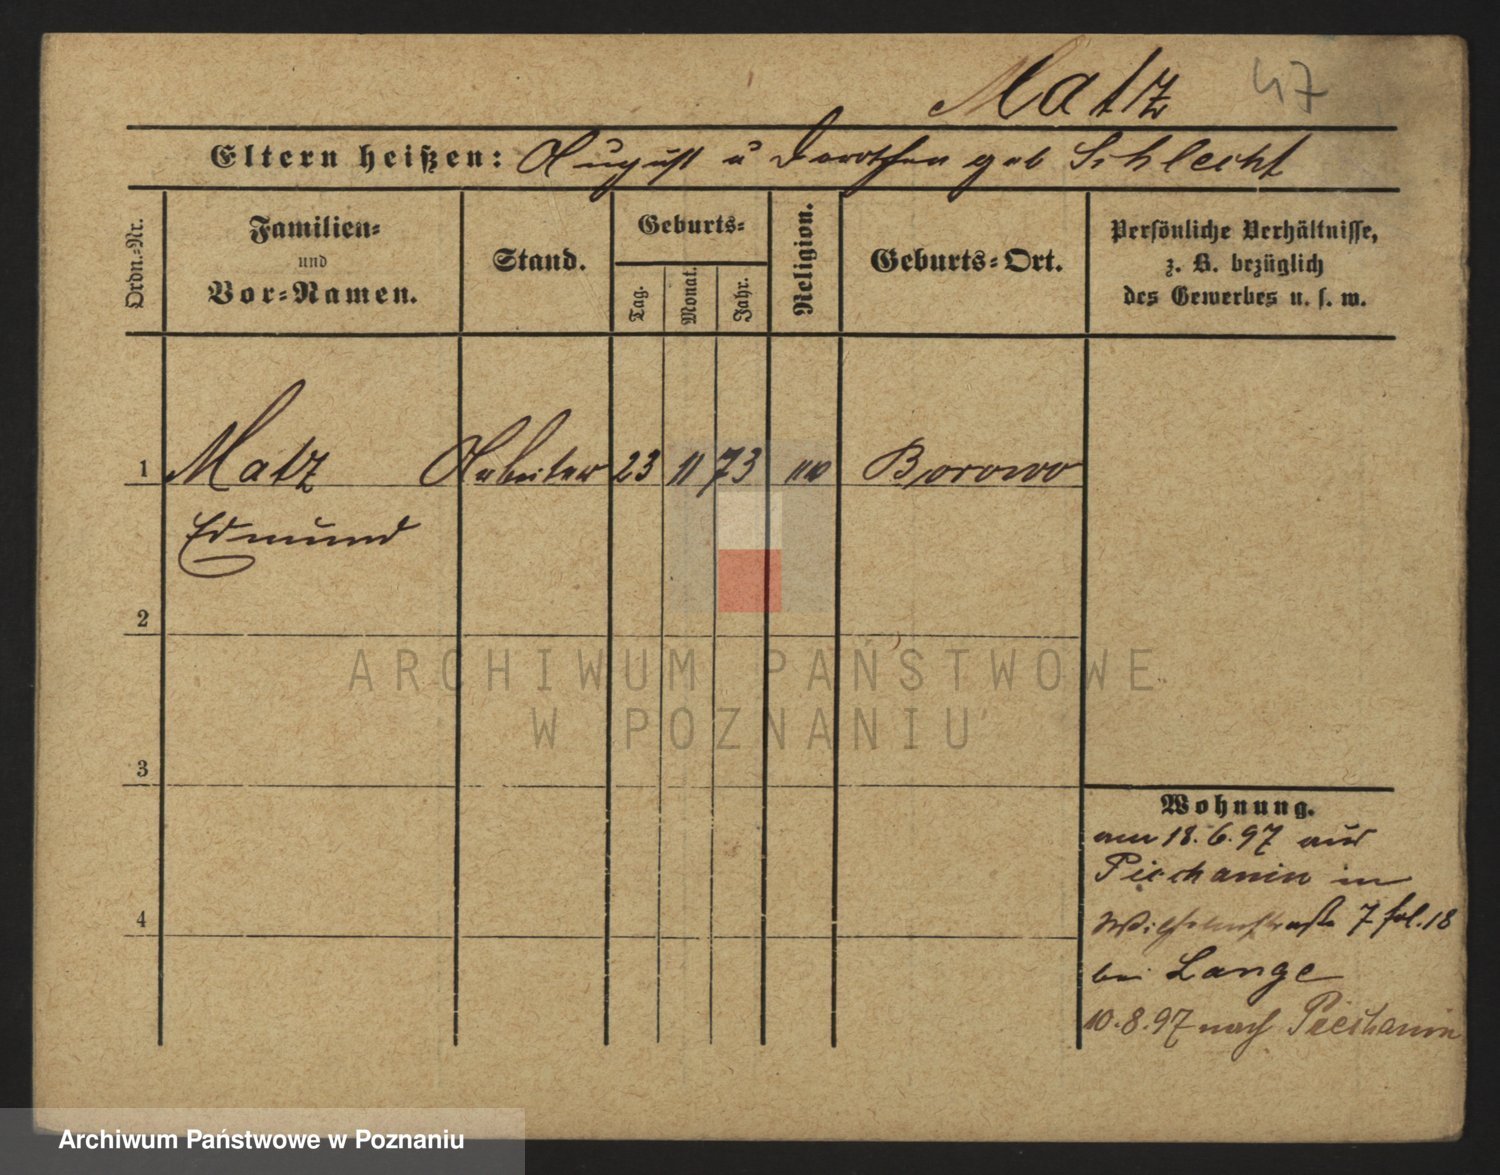 Matz 47
Eltern heißen: August u Dorothea geb Schlecht
Ordn.-Nr.
Familien-
und
Vor-Namen.
Stand.
Geburts-
Tag.
Monat.
Jahr.
Religion.
Geburts-Ort.
Persönliche Verhältnisse,
z. B. bezüglich
des Gewerbes u. s. w.
1 Matz Arbeiter 23 11 73 Borowo
Edmund
2
3
4
Wohnung.
am 18.6.97 aus
Piechanin in
Wilhelmstraße 7 fol. 18
bei Lange
10.8.97 nach Piechanin
ARCHIWUM PAŃSTWOWE
W POZNANIU
Archiwum Państwowe w Poznaniu